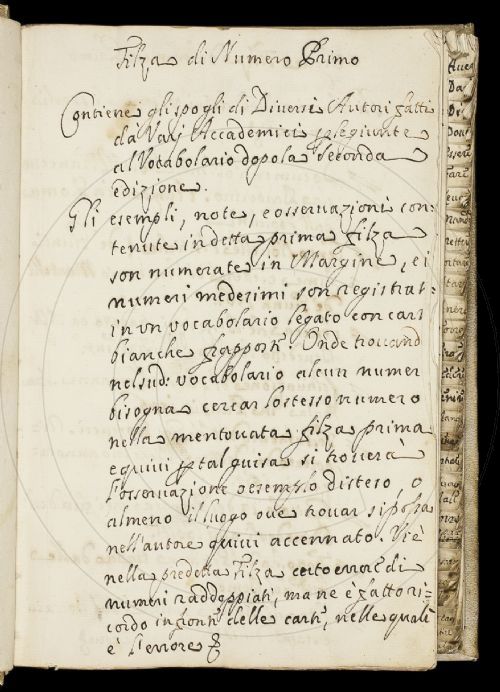 Filza di Numero Primo
Contiene gli spogli di Diversi Autori fatti
da Varj Accademici p le giunte
al Vocabolario dopo la Seconda
edizione.
Gli esempli, note, e osservazioni con=
tenute in detta prima filza
son numerate in Margine, e i
numeri medesimi son registrat=
in vn vocabolario legato con cart
bianche frappost. Onde trouand
nel sud: vocabolario alcun numer
bisogna cercar lo stesso numero
nella mentouata filza prima
e quiui p tal guisa si trouerà
l'osservazione o esemplo disteso, o
almeno il luogo oue trouar si possa
nell'autore quiui accennato. Vi è
nella predetta Filza certo errore di
numeri raddoppiati, ma ne è fatto ri=
cordo in front delle cart, nelle quali
è l'errore
Dan
Dri